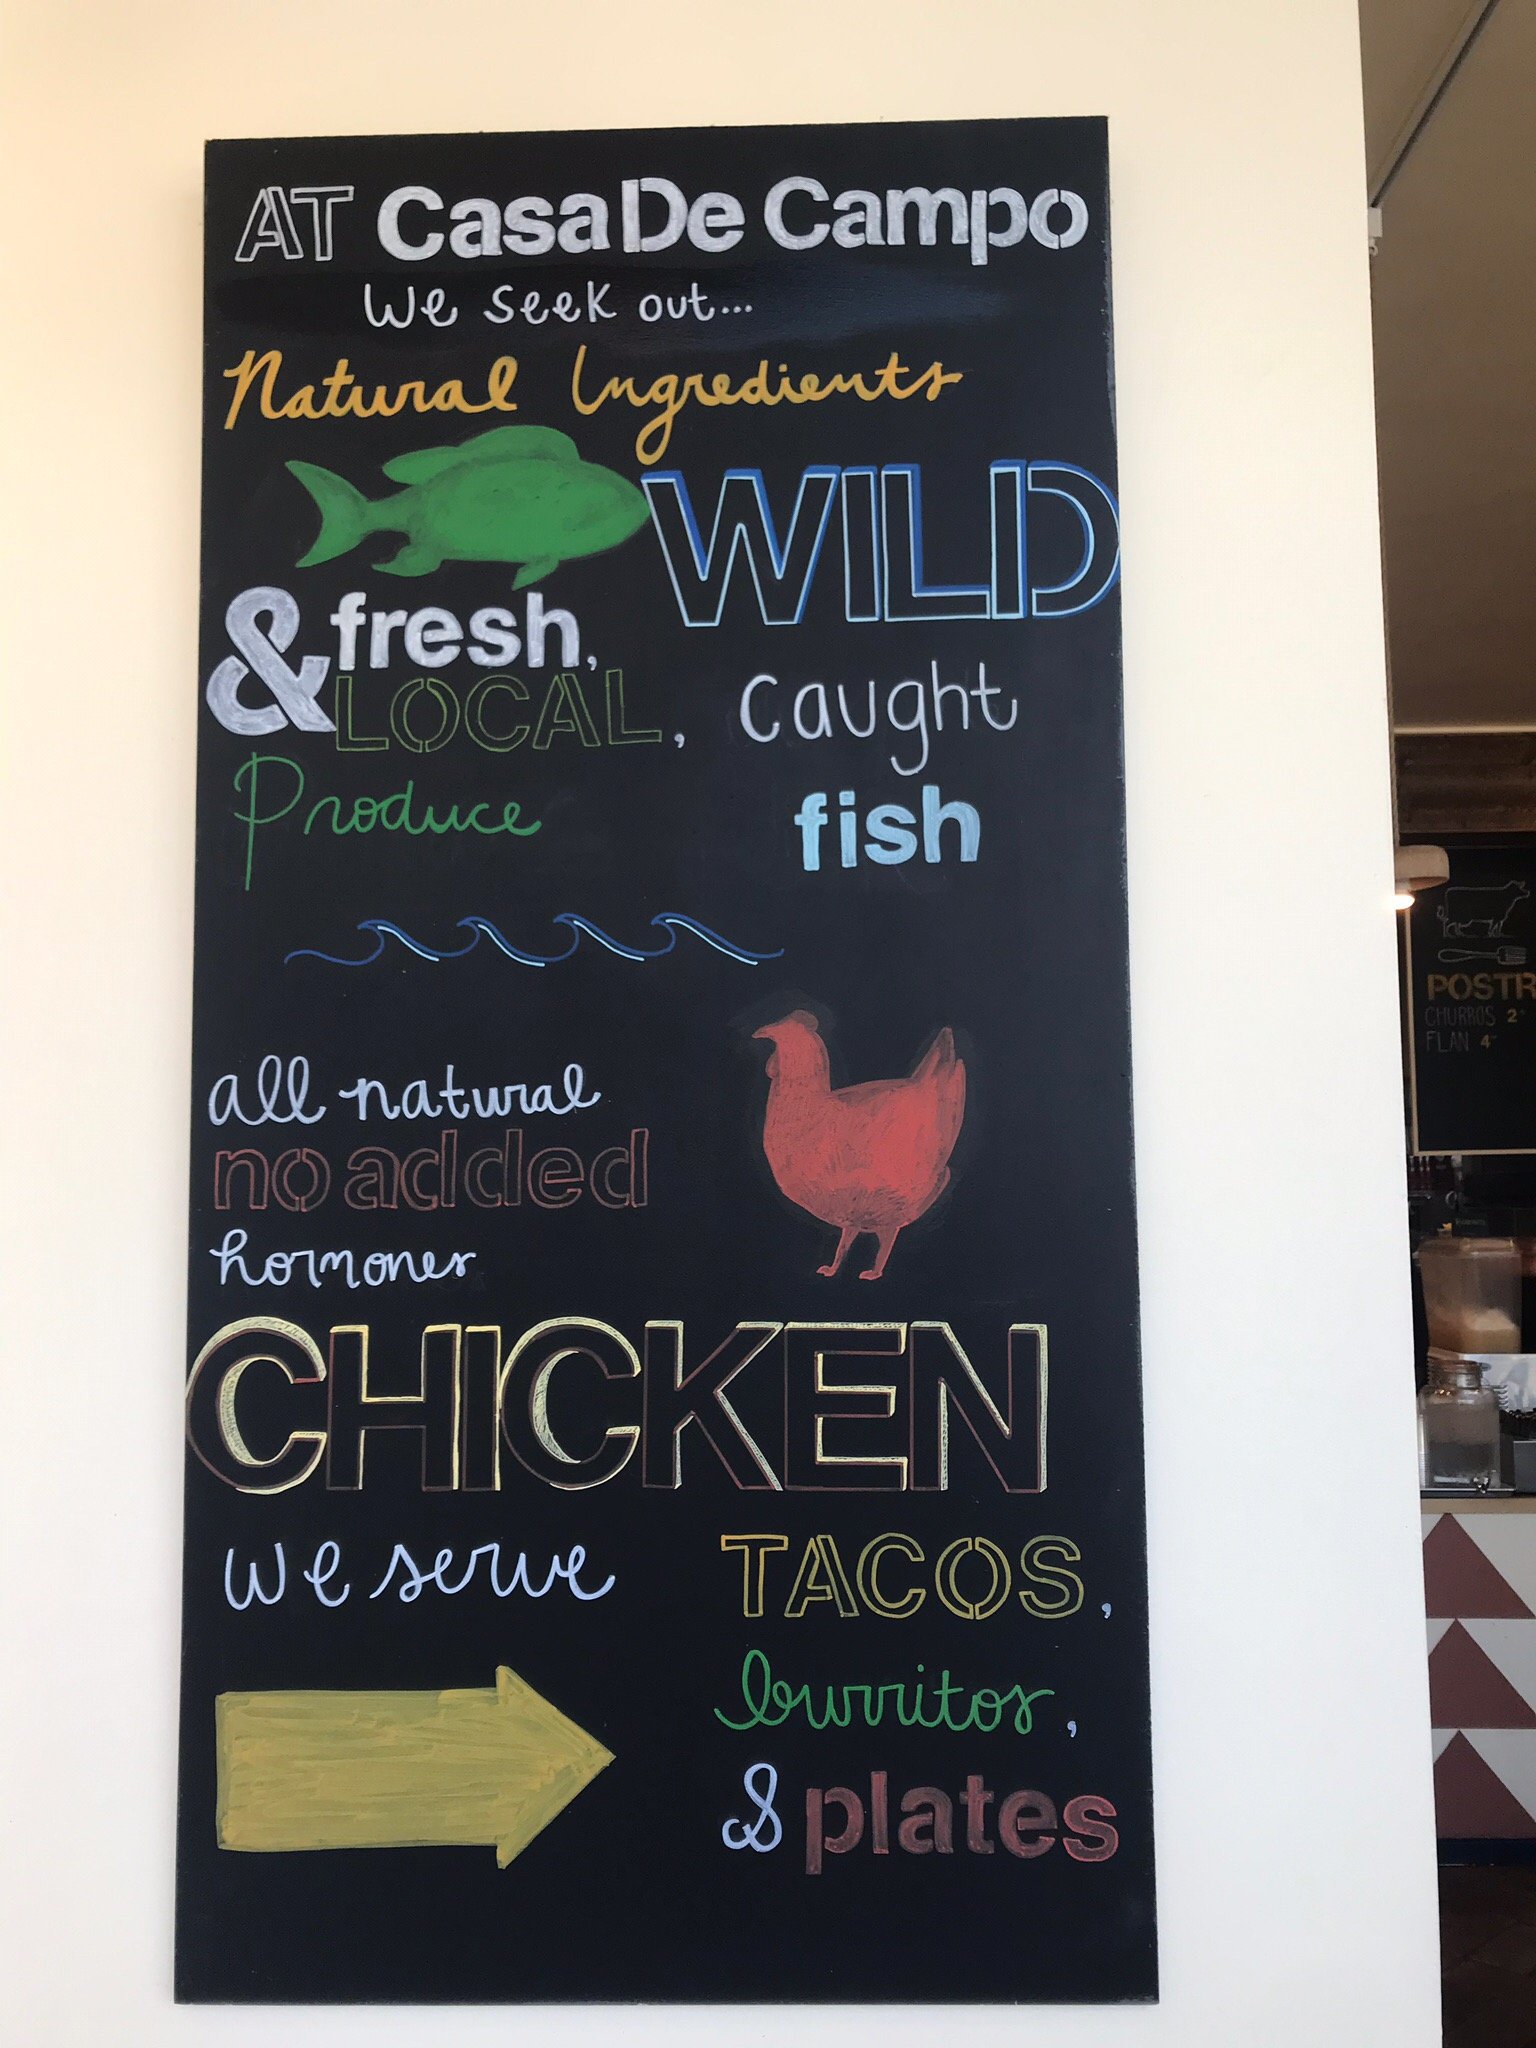 AT Casa De Campo
We seek out...
Natural Ingredients
WILD
caught
fish
& fresh,
LOCAL,
Produce
all natural
no added
hormones
CHICKEN
we serve
TACOS,
burritos,
& plates
POSTR
CHURROS 2
FLAN 4